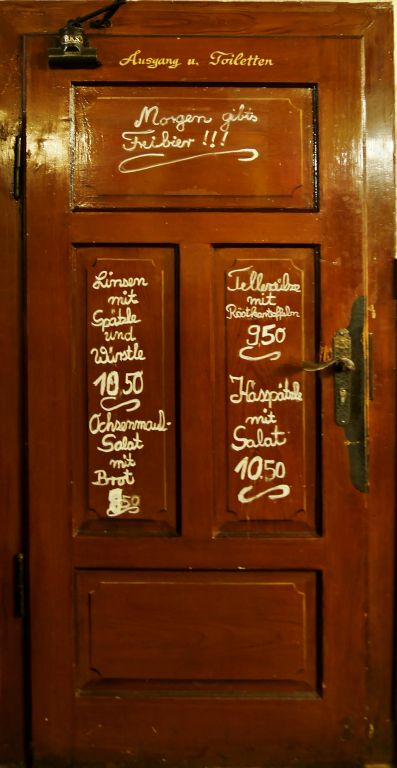 BKS
Ausgang u. Toiletten
Morgen gibts
Freibier !!!
Linsen
mit
Spätzle
und
Würstle
10.50
Ochsenmaul-
Salat
mit
Brot
50
Tellersülze
mit
Röstkartoffeln
9.50
Kasspätzle
mit
Salat
10.50